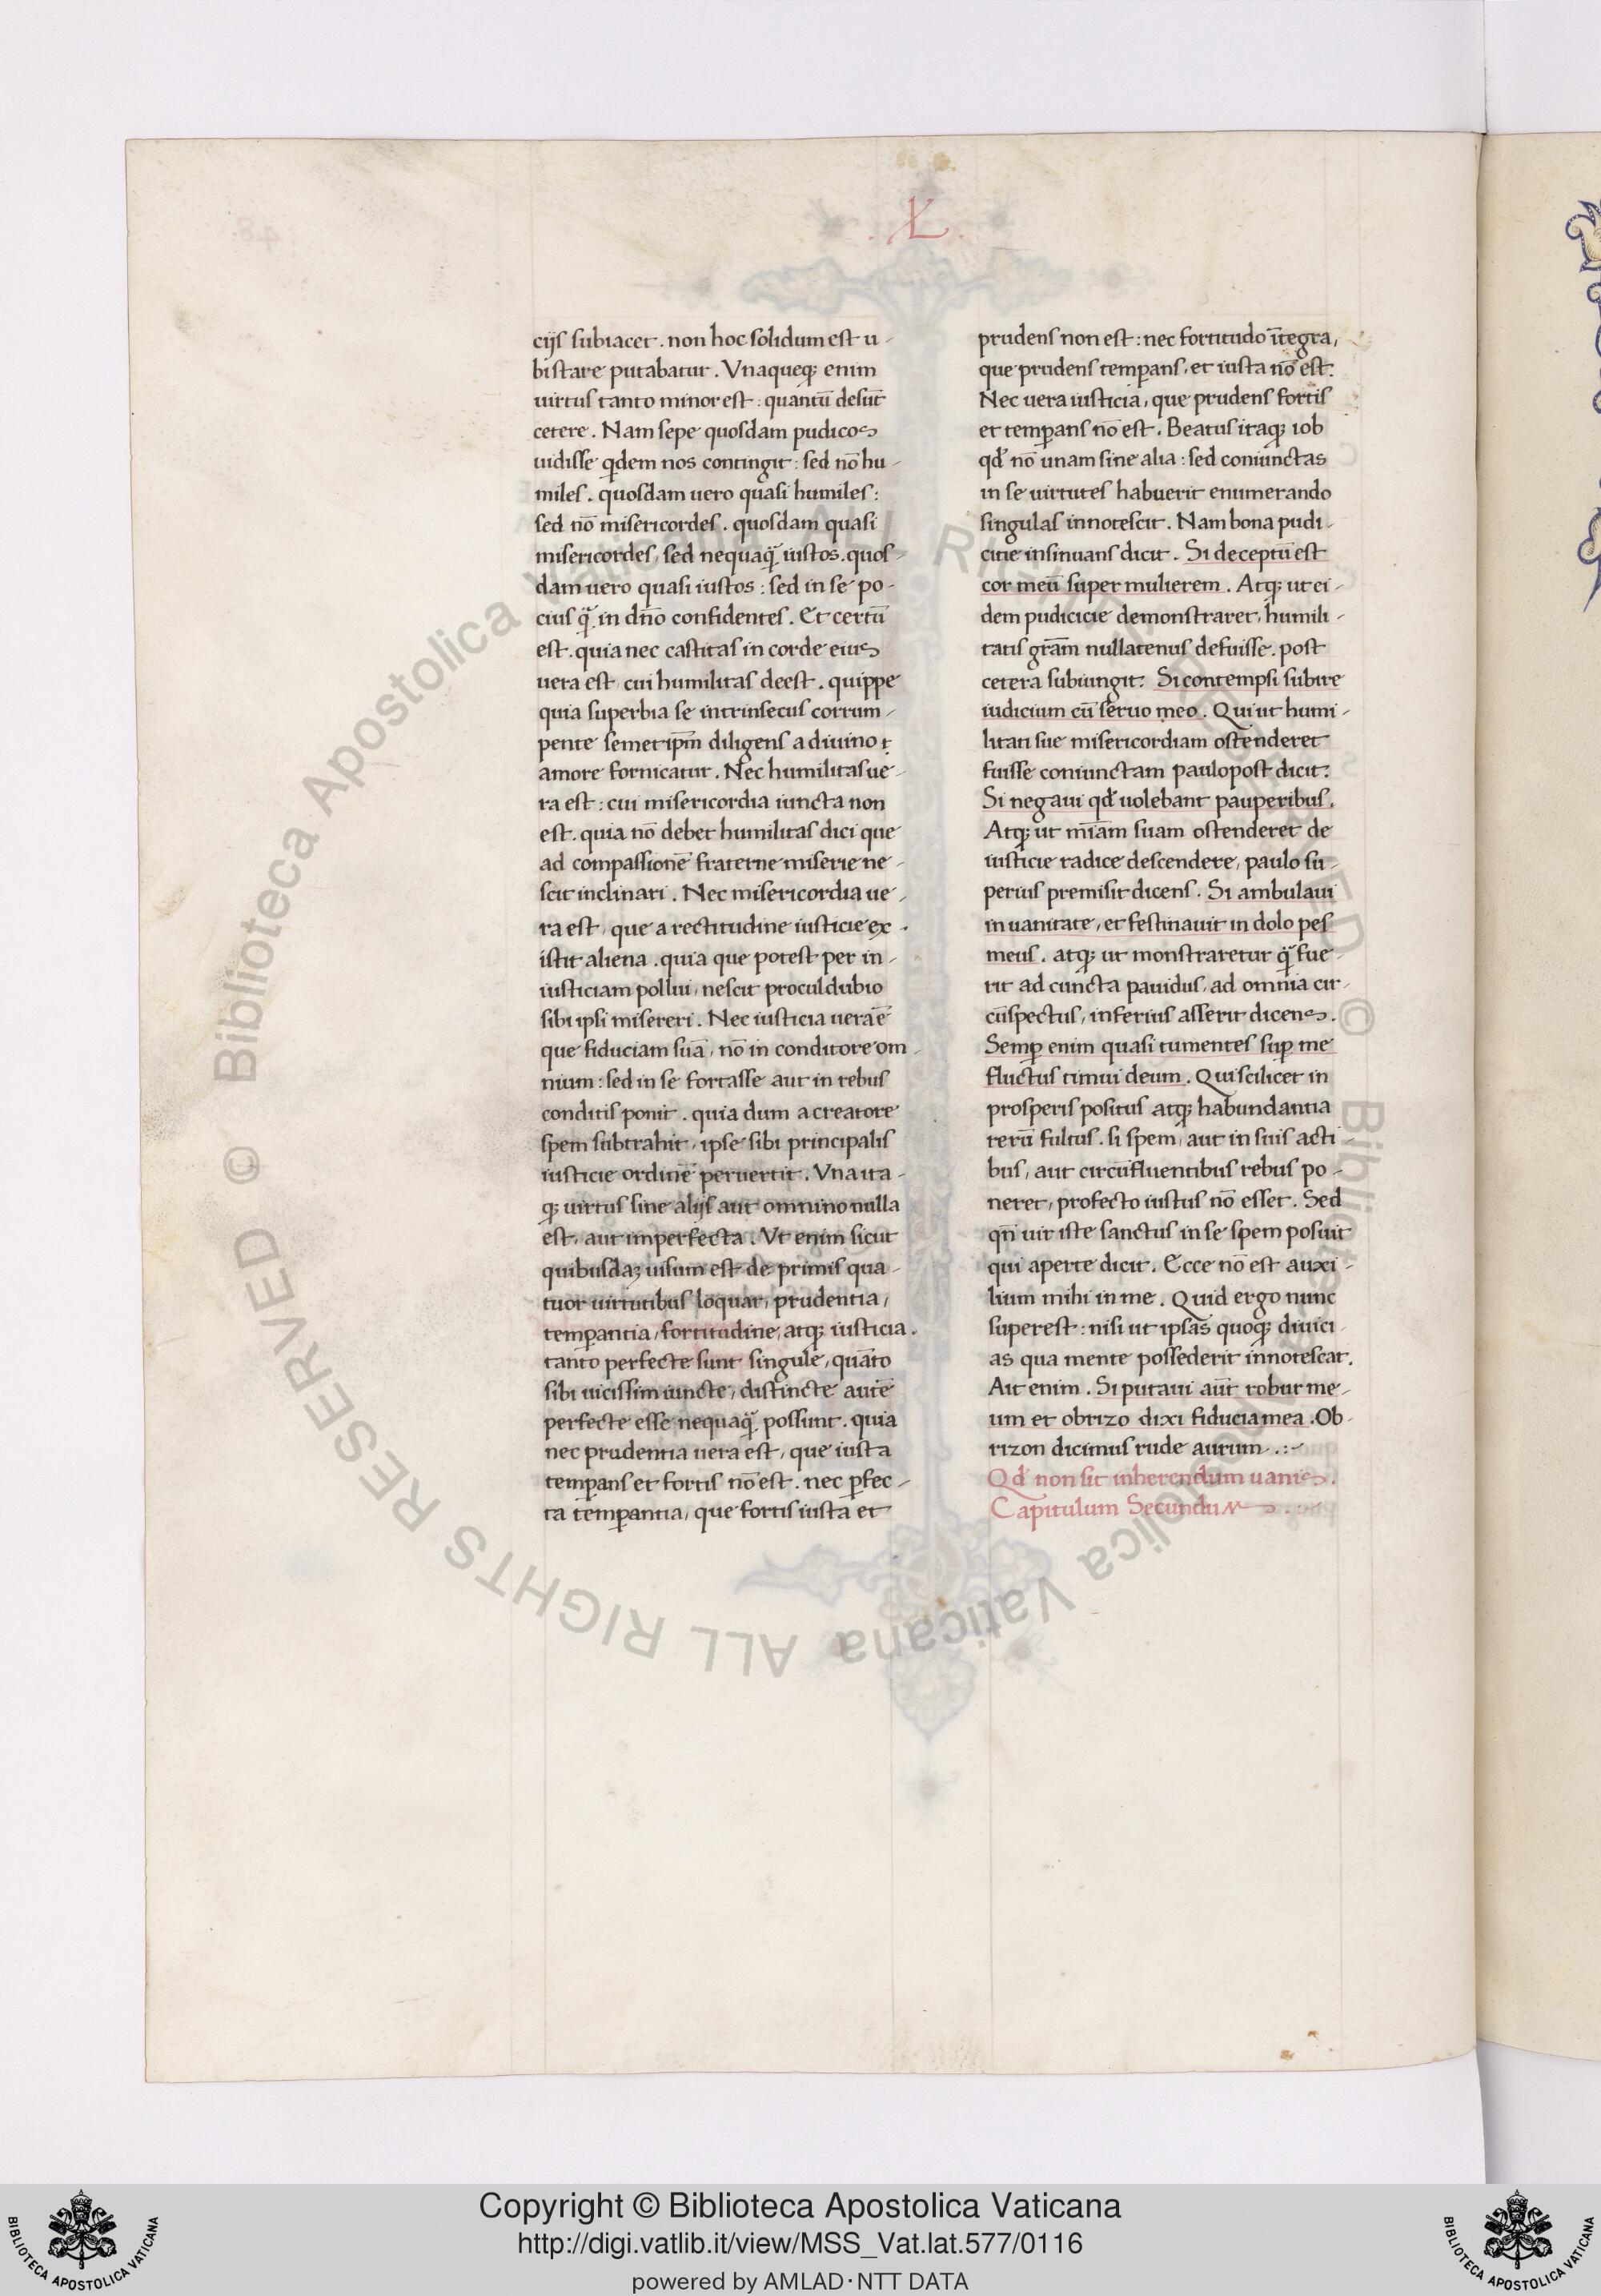 .XL.
cijs subiacet . non hoc solidum est u-
bi stare putabatur . Vnaqueq; enim
uirtus tanto minor est : quantū desūt
cetere . Nam sepe quosdam pudicos
uidisse qdem nos contingit : sed nō hu-
miles . quosdam uero quasi humiles :
sed nō misericordes . quosdam quasi
misericordes, sed nequaq̄ iustos . quos-
dam uero quasi iustos : sed in se po-
cius q̄ in dn̄o confidentes . Et certū
est . quia nec castitas in corde eius
uera est, cui humilitas deest . quippe
quia superbia se intrinsecus corrum-
pente semetip̄m diligens a diuino
amore fornicatur . Nec humilitas ue-
ra est : cui misericordia iuncta non
est . quia nō debet humilitas dici que
ad compassionē fraterne miserie ne-
scit inclinari . Nec misericordia ue-
ra est, que a rectitudine iusticie ex-
istit aliena . quia que potest per in-
iusticiam pollui, nescit procul dubio
sibi ipsi misereri . Nec iusticia uera ē
que fiduciam suā, nō in conditore om-
nium : sed in se fortasse aut in rebus
conditis ponit . quia dum a creatore
spem subtrahit, ipse sibi principalis
iusticie ordinē peruertit . Vna ita-
q; uirtus sine alijs aut omnino nulla
est, aut imperfecta . Vt enim sicut
quibusdaꝫ uisum est de primis qua-
tuor uirtutibus loquar, prudentia,
temꝑantia, fortitudine, atq; iusticia .
tanto perfecte sunt singule, quāto
sibi uicissim iuncte, distincte autē
perfecte esse nequaq̄ possunt . quia
nec prudentia uera est, que iusta
temꝑans et fortis nō est . nec ꝑfec-
ta temꝑantia, que fortis iusta et
prudens non est : nec fortitudo ītegra,
que prudens temꝑans, et iusta nō est .
Nec uera iusticia, que prudens fortis
et temꝑans nō est . Beatus itaq; iob
qđ nō unam sine alia : sed coniunctas
in se uirtutes habuerit enumerando
singulas innotescit . Nam bona pudi-
citie insinuans dicit . Si deceptū est
cor meū super mulierem . Atq; ut ei-
dem pudicicie demonstraret, humili-
tatis gr̄am nullatenus defuisse . post
cetera subiungit . Si contempsi subire
iudicium cū seruo meo . Qui ut humi-
litati sue misericordiam ostenderet
fuisse coniunctam paulopost dicit .
Si negaui qđ uolebant pauperibus .
Atq; ut mīam suam ostenderet de
iusticie radice descendere, paulo su-
perius premisit dicens . Si ambulaui
in uanitate, et festinauit in dolo pes
meus . atq; ut monstraretur q̄ fue-
rit ad cuncta pauidus, ad omnia cir-
cūspectus, inferius asserit dicens .
Semꝑ enim quasi tumentes suꝑ me
fluctus timui deum . Qui scilicet in
prosperis positus atq; habundantia
rerū fultus . si spem, aut in suis acti-
bus, aut circūfluentibus rebus po-
neret, profecto iustus nō esset . Sed
qn̄ uir iste sanctus in se spem posuit
qui aperte dicit . Ecce nō est auxi-
lium mihi in me . Quid ergo nunc
superest : nisi ut ipsas quoq; diuici-
as qua mente possederit innotescat .
Ait enim . Si putaui aūt robur me-
um et obrizo dixi fiducia mea . Ob-
rizon dicimus rude aurum . : -
Qđ non sit inherendum uanis .
Capitulum Secundum
© Biblioteca Apostolica Vaticana ALL RIGHTS RESERVED © Biblioteca Apostolica Vaticana ALL RIGHTS RESERVED
BIBLIOTECA APOSTOLICA VATICANA
Copyright © Biblioteca Apostolica Vaticana
http://digi.vatlib.it/view/MSS_Vat.lat.577/0116
powered by AMLAD·NTT DATA
BIBLIOTECA APOSTOLICA VATICANA